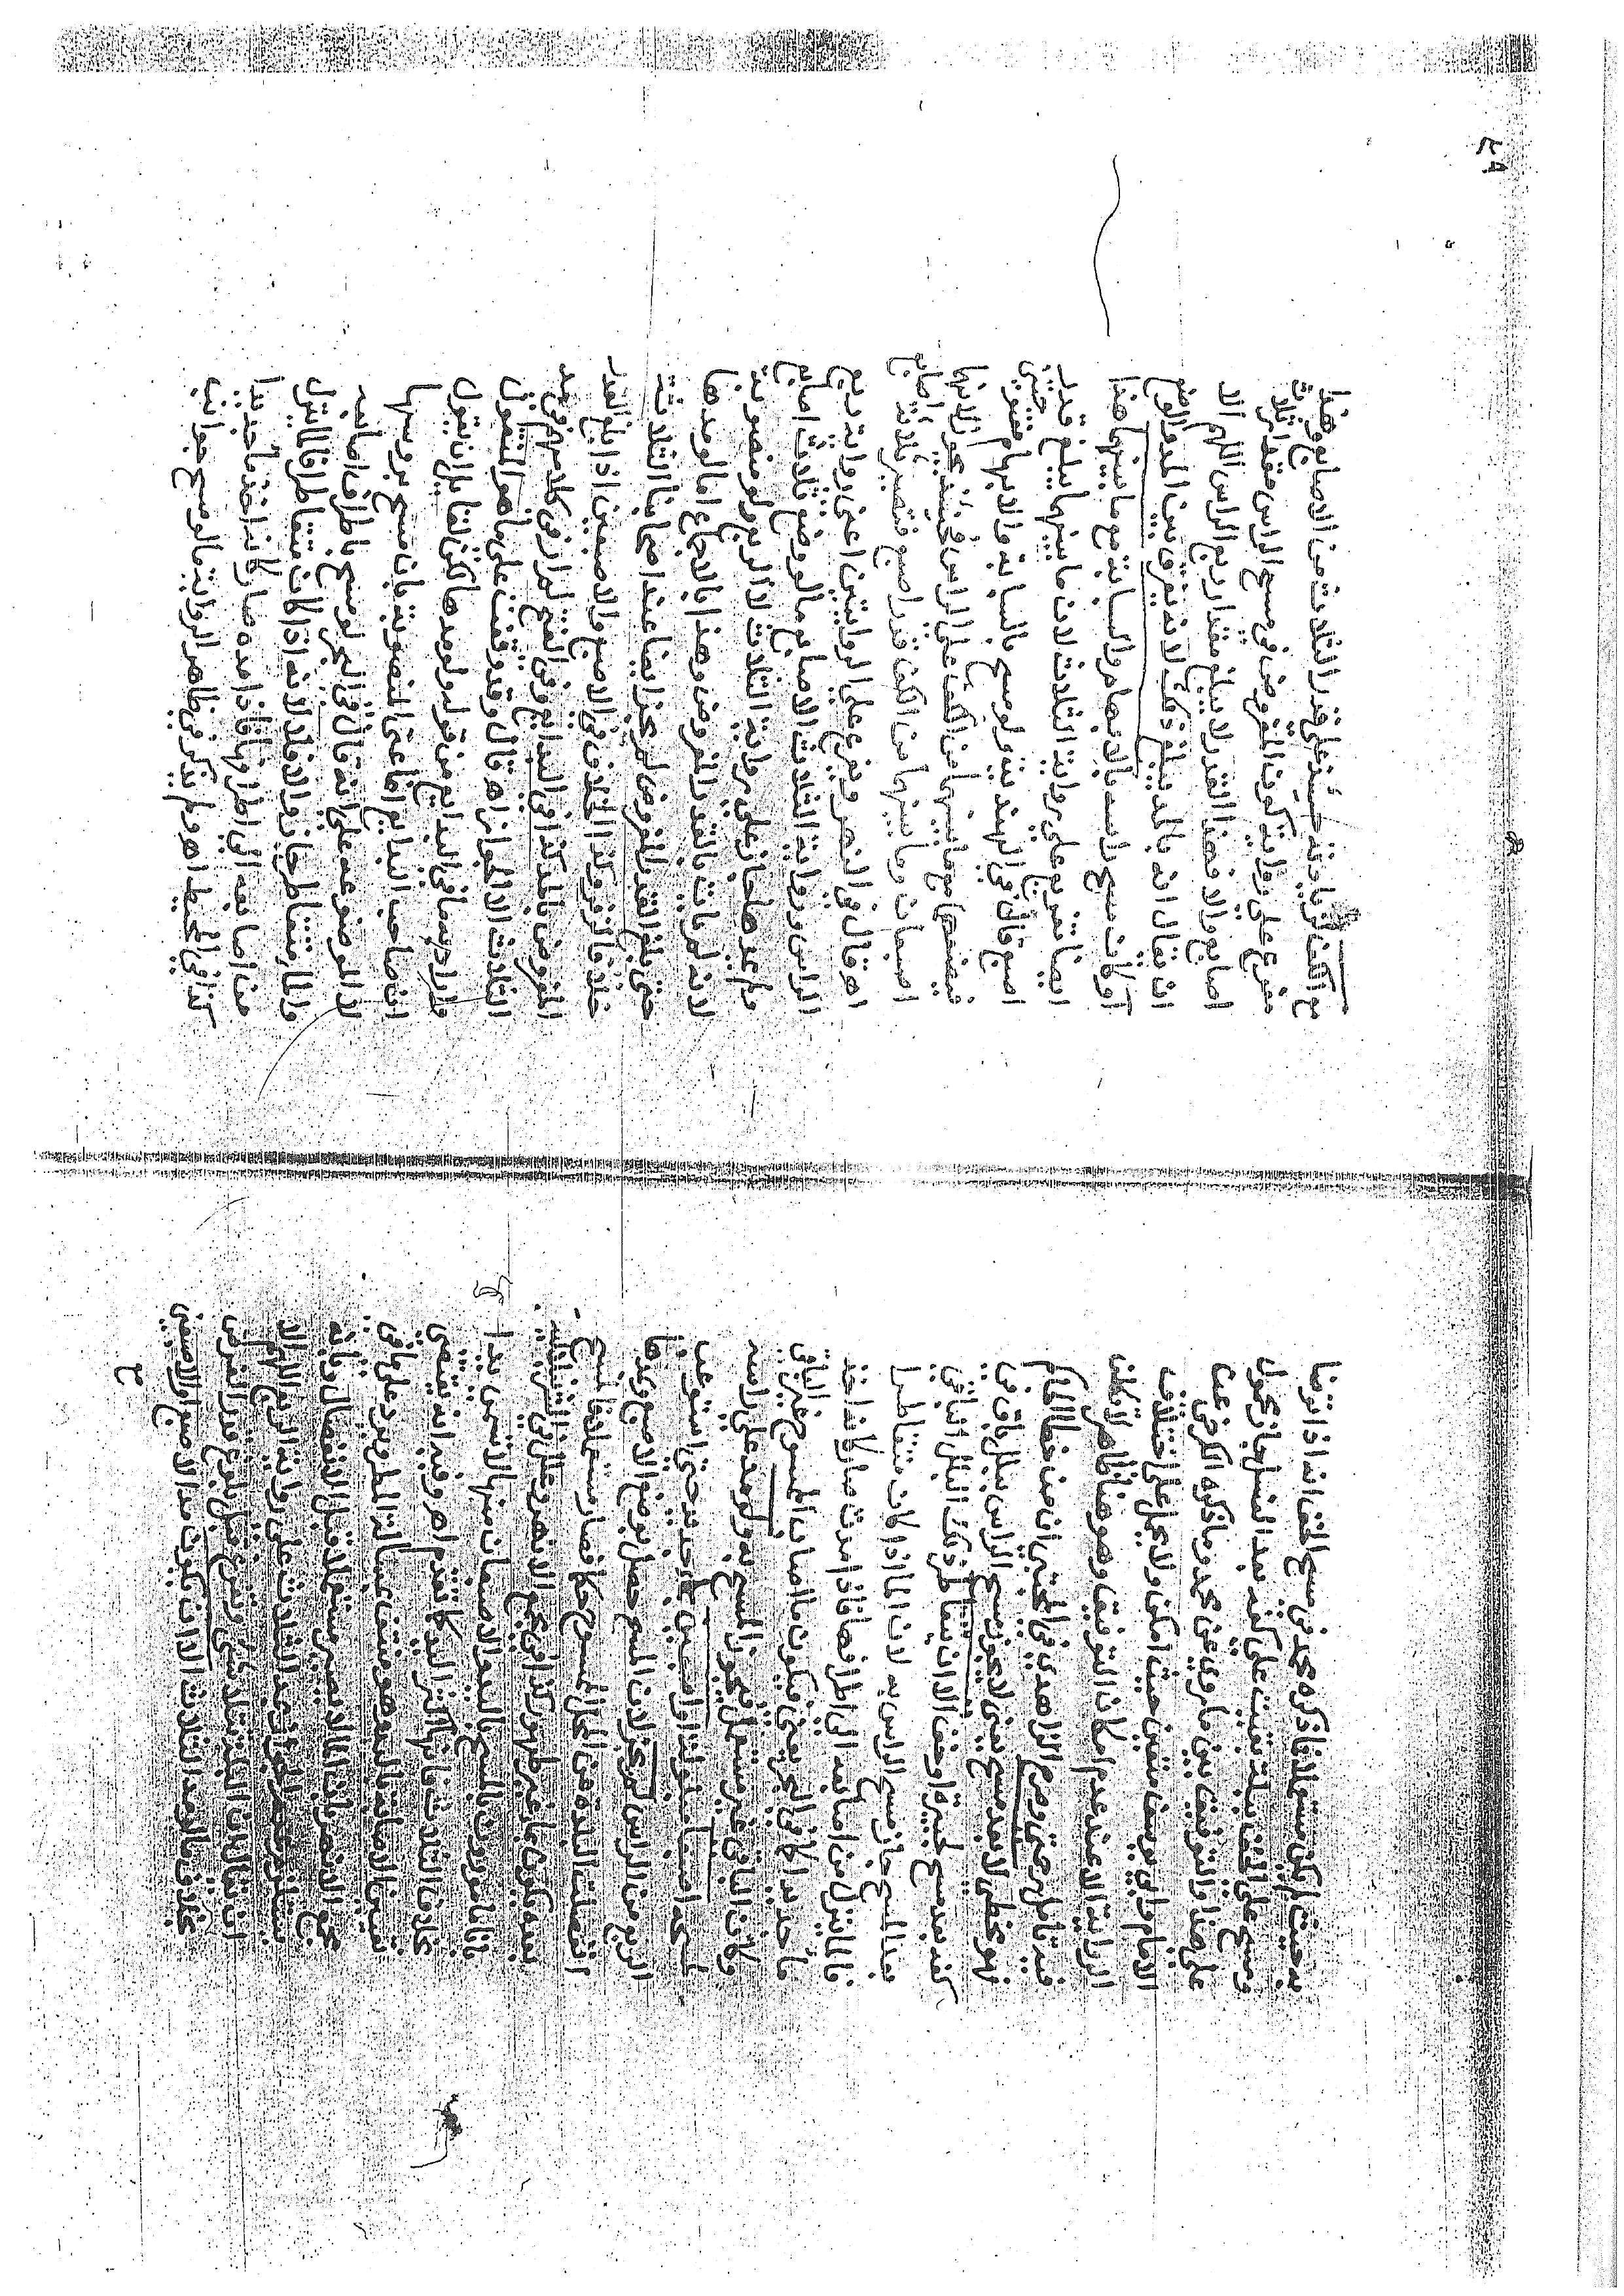 به حيث لم يكن مستعملا فما ذكره محمد في مسح الخف انه اذا توضا
ومسح على الخف ببلة بقيت على كفه بعد الغسل جاز محمول
على هذا والتوفيق بين ما روي عن محمد وما ذكره الكرخي عن
الامام وابي يوسف متعين حيث امكن ولا يحمل على اختلاف
الرواية الا عند عدم امكان التوفيق وهو هنا ظاهر
فيه تامل وصرح الزاهدي في المجتبى ان من خطأ الحاكم
فهو مخطئ لا بعد مسح يعني لا يجوز مسح الراس ببلل باق في
كفه بعد مسح لحيته او خف الا ان يتقاطر البلل الباقي
بعد المسح جاز مسح الراس به لان الماء اذا كان متقاطرا
فالماء ينزل من اصابعه الى اطرافها فاذا مدت صار كانه اخذ
ماء جديدا كما في البحر يعني فيكون ما اصاب الممسوح غير الباقي
وكان الباقي غير مستعمل فيجوز المسح به ولو مد على راسه
لمسحه اصبعا مبلولة او اصبعين حتى استوعب
الربع من الراس لم يجز لان المسح حصل بوضع الاصبع وبمدها
انفصلت البلة عن المحل الممسوح حكما فصار مستعملا فلمسح
بعده يكون بما غير طهور كذا في مجمع الانهر وعلل في
بانا مامورون بالمسح باليد والاصبعان منها لا تسمى يدا
بخلاف الثلاث فانها اكثر اليد كما تقدم اه وفيه انه يقتضي
تعيين الاصابة باليد وهو منتف بمسالة المطر ويرد على ما في
مجمع الانهر بان الماء لا يصير مستعملا قبل الانفصال وبانه
يستلزم عدم الجواز بمد الثلاث على رواية الربع اللهم الا
ان يقال ان البلة تتلاشى وتفرغ قبل بلوغ قدر الفرض
بخلاف ما لو مد الثلاث الا ان يكون مد الاصبع والاصبعين
مع
٤٩
مع الكف لزيادته حينئذ على قدر الثلاث من الاصابع وهذا
مفرع على رواية كون المفروض في مسح الراس مقدار ثلاث
اصابع والا فهذا القدر لا يبلغ مقدار ربع الراس اللهم الا
ان يقال انه بالمد يبلغ ذلك لانه يفرق بين المد والوضع
او كان مسح راسه بالابهام والسبابة مع ما بينهما هذا
ايضا تفريع على رواية الثلاث لان ما بينهما يبلغ قدر
اصبع قال في الهندية ولو مسح بالسبابة والابهام مفتوحين
فيضعهما مع ما بينهما من الكف على الراس فحينئذ يجوز لانهما
اصبعان وما بينهما من الكف قدر اصبع فتصير ثلاثة اصابع
اه قال في النهر وتفرع على الروايتين اعني رواية ربع
الراس ورواية الثلاث الاصابع ما لو وضع ثلاث اصابع
ولم يمدها جاز على رواية الثلاث لا الربع ولو منصوبة
لانه لم يات بالقدر المفروض وهذا بالاجماع اما لو مدها
حتى بلغ القدر المفروض لم يجز ايضا عند اصحابنا الثلاثة
خلافا لزفر وكذا الخلاف في الاصبع والاصبعين اذا بلغ القدر
المفروض بالمد كذا في البدايع وفي الفتح لم ار في كلامهم في مد
الثلاث الا الجواز اه قال وقد وقفت على ما هو المنقول
واراد به ما في البدايع من قوله ولو مدها لكن لقائل ان يقول
ان صاحب البدايع انما عنى المنصوبة بان مسح بروسها
لا الموضوعة على انه قال في البحر لو مسح باطراف اصابعه
والماء متقاطر جاز والا فلا لانه اذا كان متقاطرا فالماء ينزل
من اصابعه الى اطرافها فاذا مده صار كانه اخذ ماء جديدا
كذا في المحيط اه ولم يذكر في ظاهر الرواية ما لو مسح جوانب